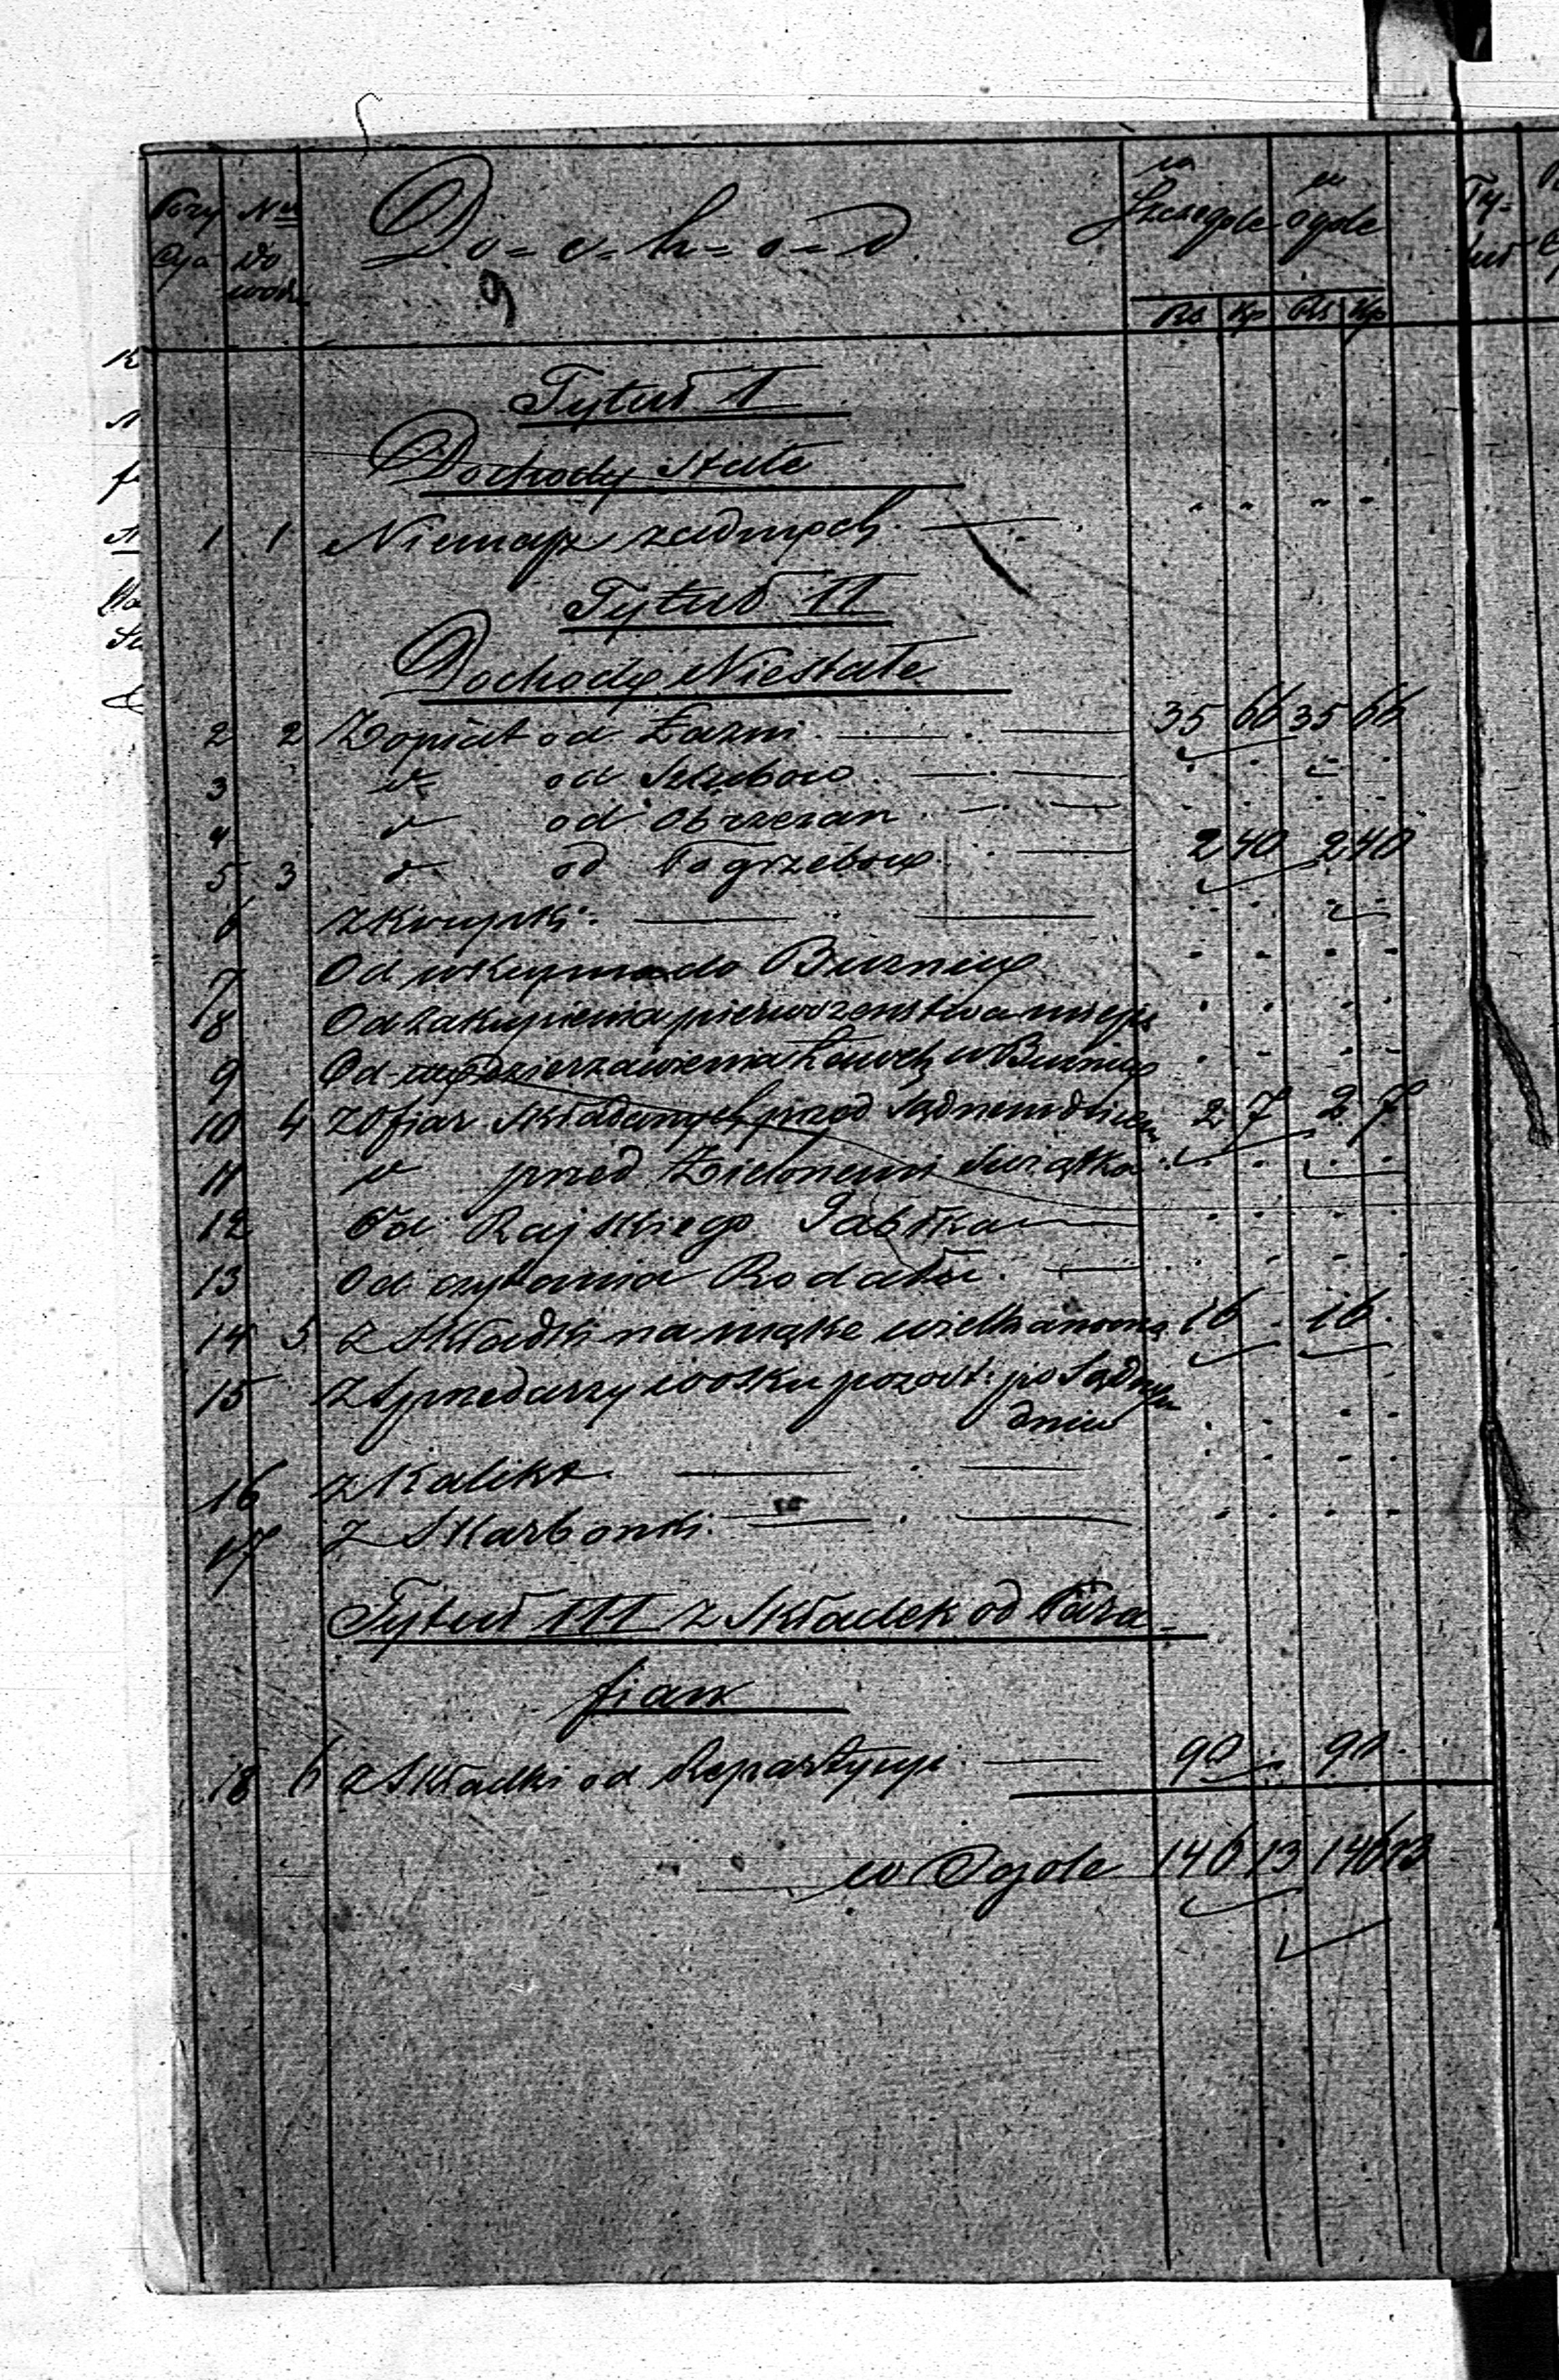 Pozy Nry D=o=c=h=o=d w w
cya do Szczegole ogole
wodu
9
Rs Kp Rs Kp
Tytuł I
Dochody Stałe
1 1 Niemasz zadnych " " " "
Tytuł II
Dochody Niestałe
2 2 Z opłat od Łazni 35 66 35 66
3 " od Szlubow
4 " od Obrzezan
5 3 " od Pogrzebow 2 40 2 40
6 z Krupki
7 Od wkupna do Buznicy
8 Od zakupienia pierwszenstwa miejsc
9 Od wydzierzawienia Ławek w Buznicy
10 4 Z Ofiar składanych przed Sądnem dniem 2 7 2 7
11 " przed Zielonemi Swiątka
12 Od Rajskiego Jabłka
13 Od czytania Rodału
14 5 z Składki na mąke wielkanocną 16 . 16 .
15 Z Sprzedarzy wosku pozost: po Sądnym
dniu
16 z Kalikt
17 z Skarbonki
Tytuł III z Składek od Para=
fian
18 6 z Składki od Repartycyi 90 " 90 .
w Ogole 146 13 146 13